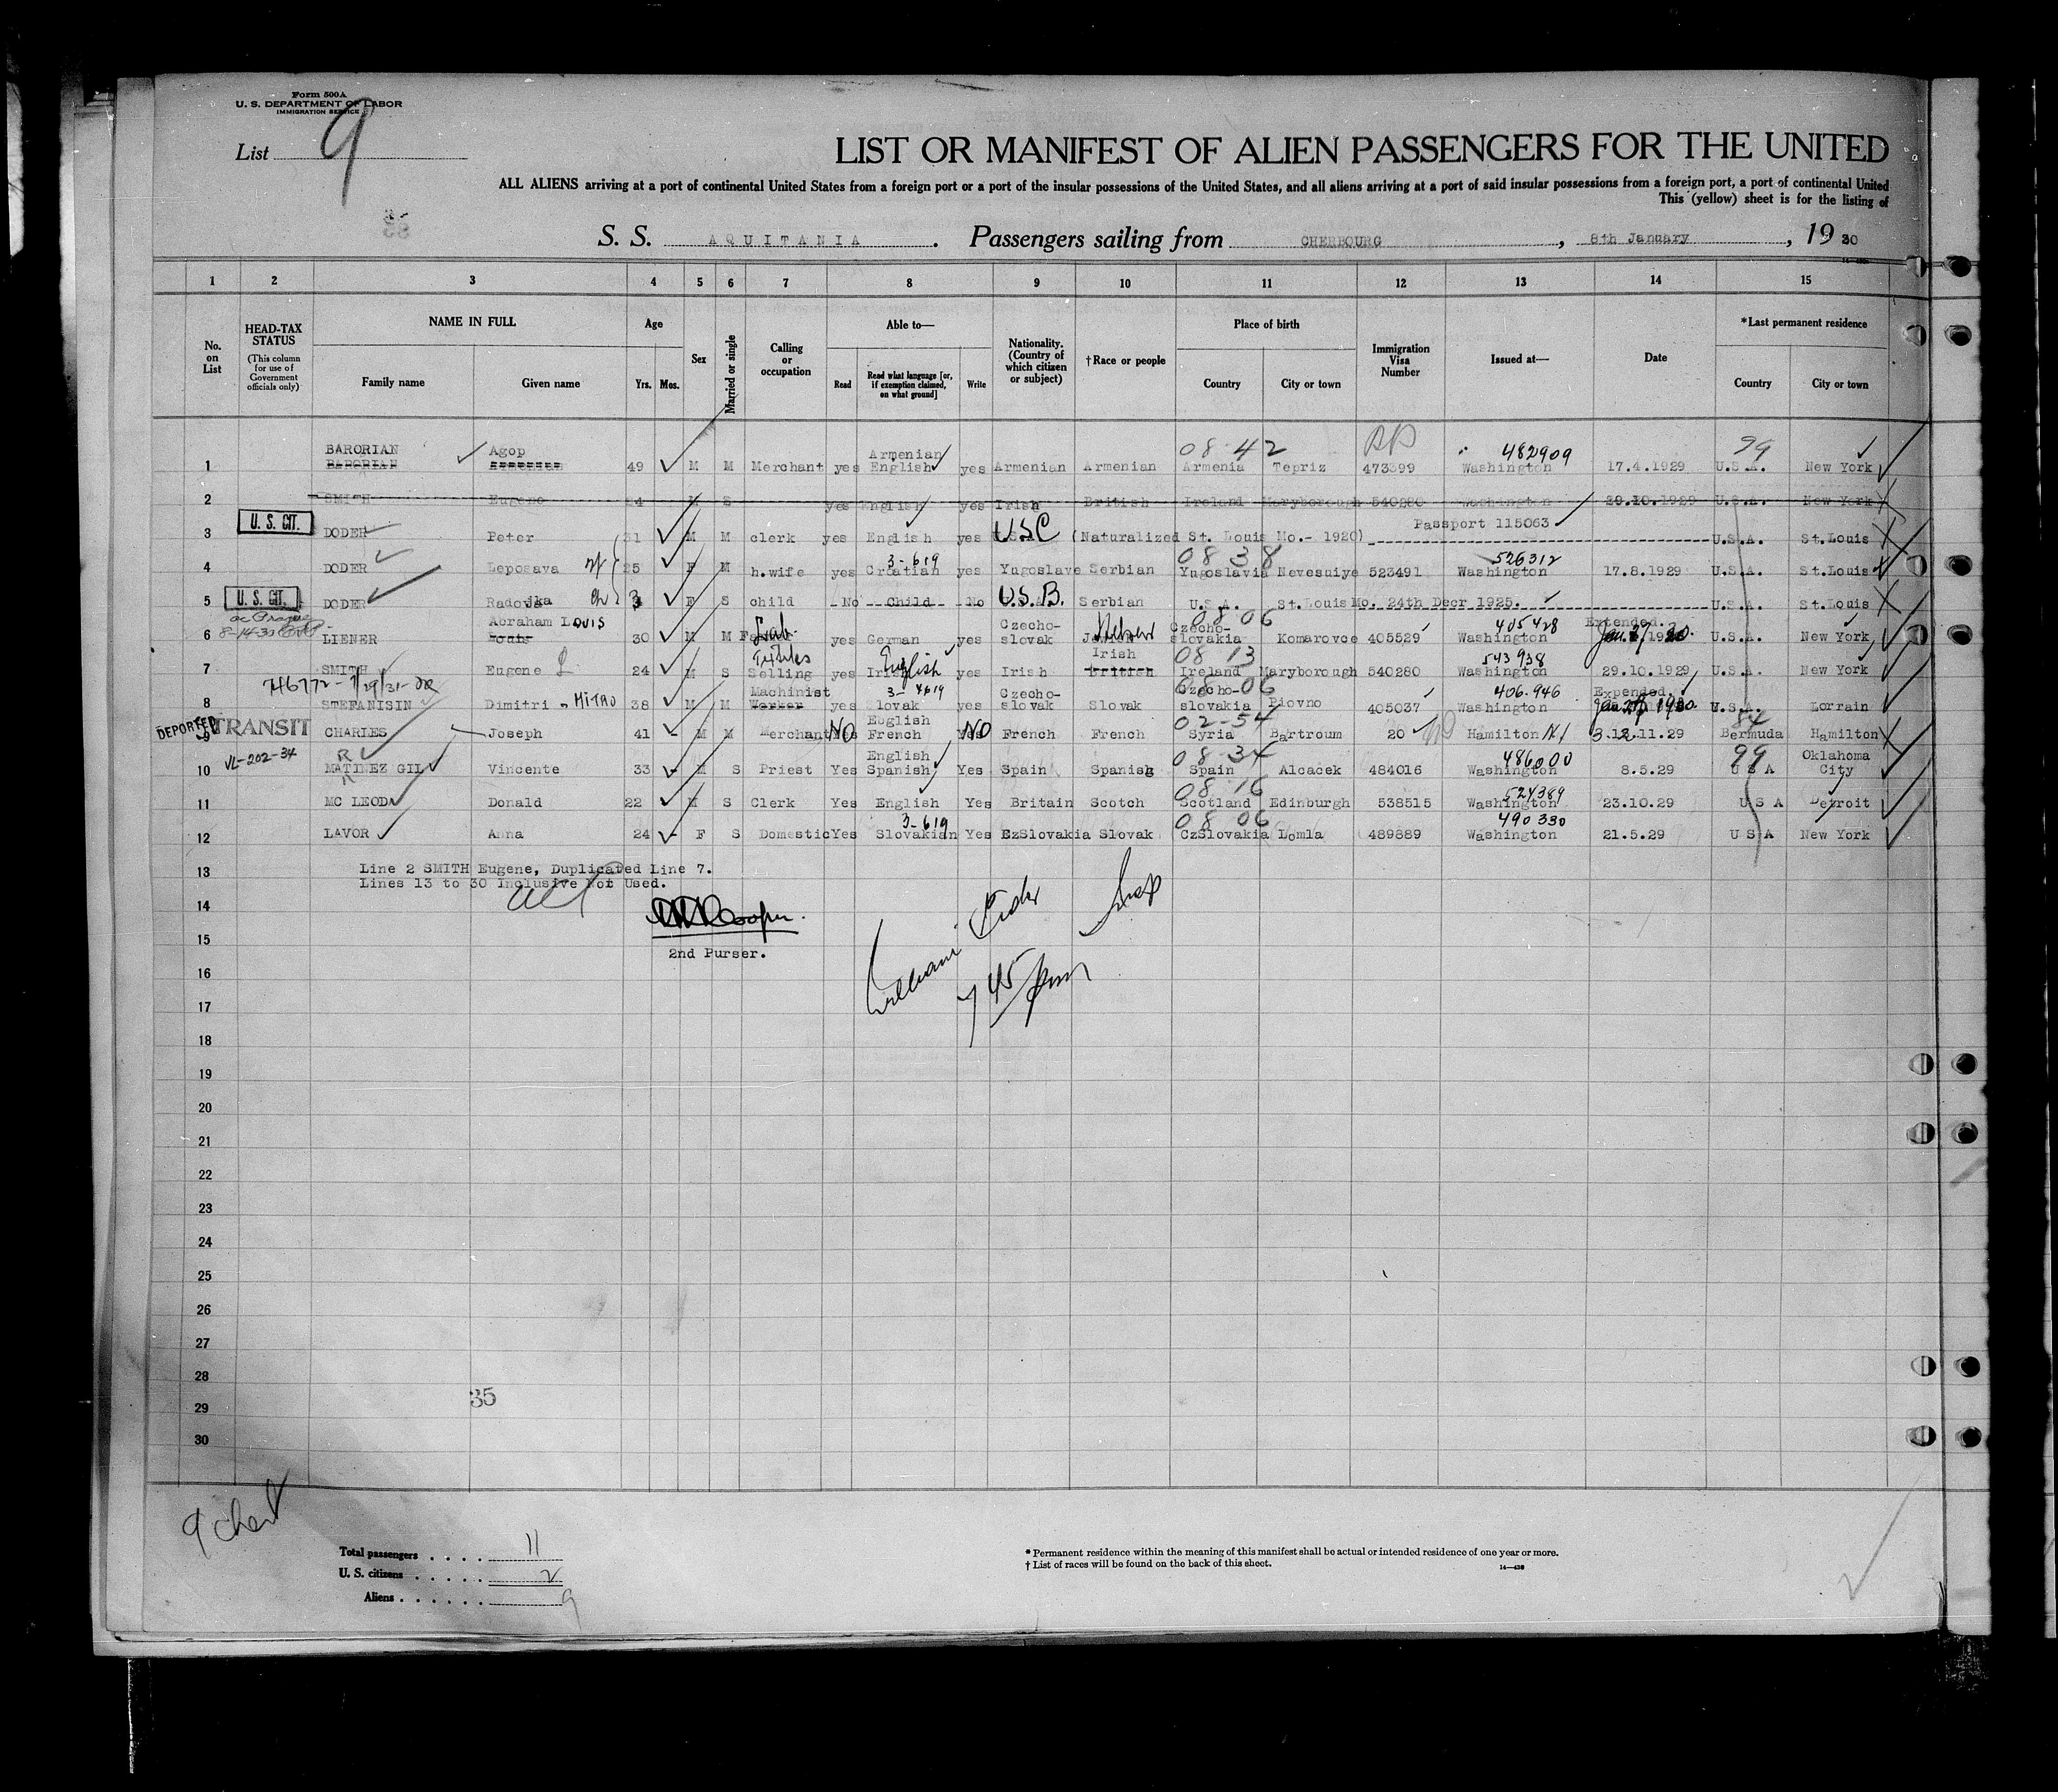 Form 500A
U. S. DEPARTMENT OF LABOR
IMMIGRATION SERVICE
List 9
LIST OR MANIFEST OF ALIEN PASSENGERS FOR THE UNITED
ALL ALIENS arriving at a port of continental United States from a foreign port or a port of the insular possessions of the United States, and all aliens arriving at a port of said insular possessions from a foreign port, a port of continental United
This (yellow) sheet is for the listing of
S. S. AQUITANIA . Passengers sailing from CHERBOURG , 8th January , 19 30
1 2 3 4 5 6 7 8 9 10 11 12 13 14 15
No. on List
HEAD-TAX STATUS
(This column for use of Government officials only)
NAME IN FULL
Family name Given name
Age
Yrs. Mos.
Sex
Married or single
Calling or occupation
Able to—
Read Read what language [or, if exemption claimed, on what ground] Write
Nationality. (Country of which citizen or subject)
†Race or people
Place of birth
Country City or town
Immigration Visa Number
Issued at—
Date
*Last permanent residence
Country City or town
BARORIAN Agop Armenian 08 42 482909 99
1 BARORIAN 49 M M Merchant yes English yes Armenian Armenian Armenia Tepriz 473399 Washington 17.4.1929 U.S.A. New York
2 SMITH Eugene 24 M S yes English yes Irish British Ireland Maryborough 540280 Washington 29.10.1929 U.S.A. New York
U. S. CIT. Passport 115063
3 DODER Peter 31 M M clerk yes English yes USC (Naturalized St. Louis Mo.- 1920) U.S.A. St.Louis
3-619 08 38 526312
4 DODER Leposava 25 F M h.wife yes Croatian yes Yugoslave Serbian Yugoslavia Nevesuiye 523491 Washington 17.8.1929 U.S.A. St.Louis
5 U. S. CIT. DODER Radojka 3 F S child No Child No U.S.B. Serbian U.S.A. St.Louis Mo. 24th Decr 1925. U.S.A. St.Louis
8-14-33 Abraham LOUIS Lab. Czecho- Hebrew Czecho- 08 06 405428 Extended.
6 LIENER Louis 30 M M yes German yes slovak slovakia Komarovce 405529 Washington U.S.A. New York
Textiles English Irish 08 13 543938
7 SMITH Eugene 24 M S Selling yes Irish yes Irish British Ireland Maryborough 540280 Washington 29.10.1929 U.S.A. New York
Machinist 3-4619 Czecho- Czecho- 08-06 406.946
8 STEFANISIN Dimitri MITRO 38 M M Worker yes Slovak yes slovak Slovak slovakia Piovno 405037 Washington U.S.A. Lorrain
DEPORTED TRANSIT English 02-54 84
9 CHARLES Joseph 41 M M Merchant NO French NO French French Syria Bartroum 20 Hamilton 12.11.29 Bermuda Hamilton
VL-202-34 R English 08-34 486000 99 Oklahoma
10 MATINEZ GIL Vincente 33 M S Priest Yes Spanish Yes Spain Spanish Spain Alcacek 484016 Washington 8.5.29 U S A City
08 16 524389
11 MC LEOD Donald 22 M S Clerk Yes English Yes Britain Scotch Scotland Edinburgh 538515 Washington 23.10.29 U S A Detroit
3-619 08 06 490330
12 LAVOR Anna 24 F S Domestic Yes Slovakian Yes EzSlovakia Slovak CzSlovakia Lomla 489889 Washington 21.5.29 U S A New York
13 Line 2 SMITH Eugene, Duplicated Line 7.
Lines 13 to 30 Inclusive Not Used.
14
15
2nd Purser.
16
7 45 pm
17
18
19
20
21
22
23
24
25
26
27
28
35
29
30
Total passengers . . . . 11
U. S. citizens . . . . . 2
Aliens . . . . . . 9
* Permanent residence within the meaning of this manifest shall be actual or intended residence of one year or more.
† List of races will be found on the back of this sheet.